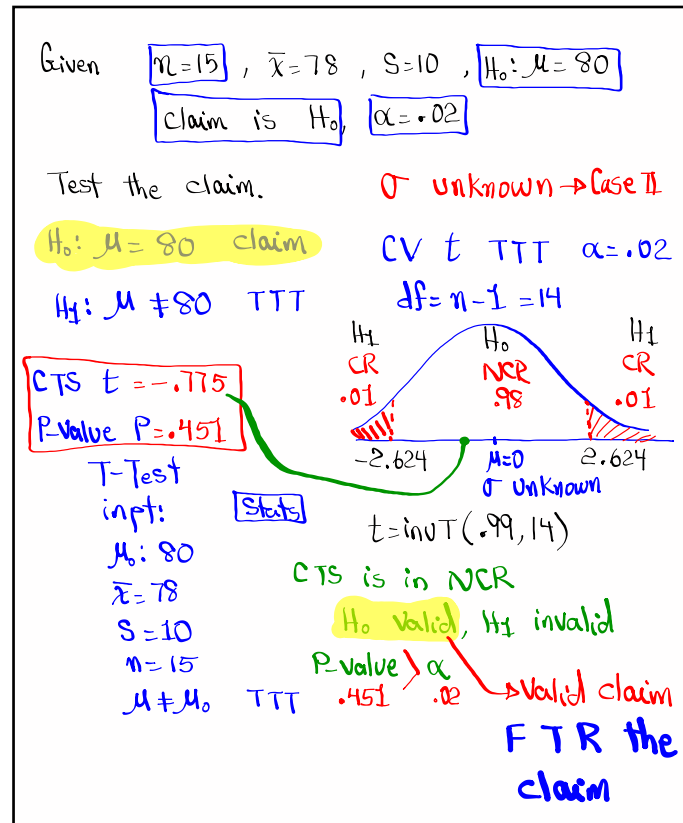 Given n=15 , x̄=78 , S=10 , H₀: μ=80
claim is H₀, α=.02
Test the claim.
σ unknown → Case II
H₀: μ=80 claim
CV t TTT α=.02
H₁: μ≠80 TTT
df=n-1=14
H₁ H₀ H₁
CR NCR CR
.01 .98 .01
CTS t=-.775
P-Value P=.451
-2.624 μ=0 2.624
σ unknown
T-Test
inpt: Stats
μ₀: 80
x̄=78
S=10
n=15
μ≠μ₀ TTT
t=invT(.99,14)
CTS is in NCR
H₀ Valid, H₁ invalid
P-value > α
.451 .02
→Valid claim
FTR the
claim